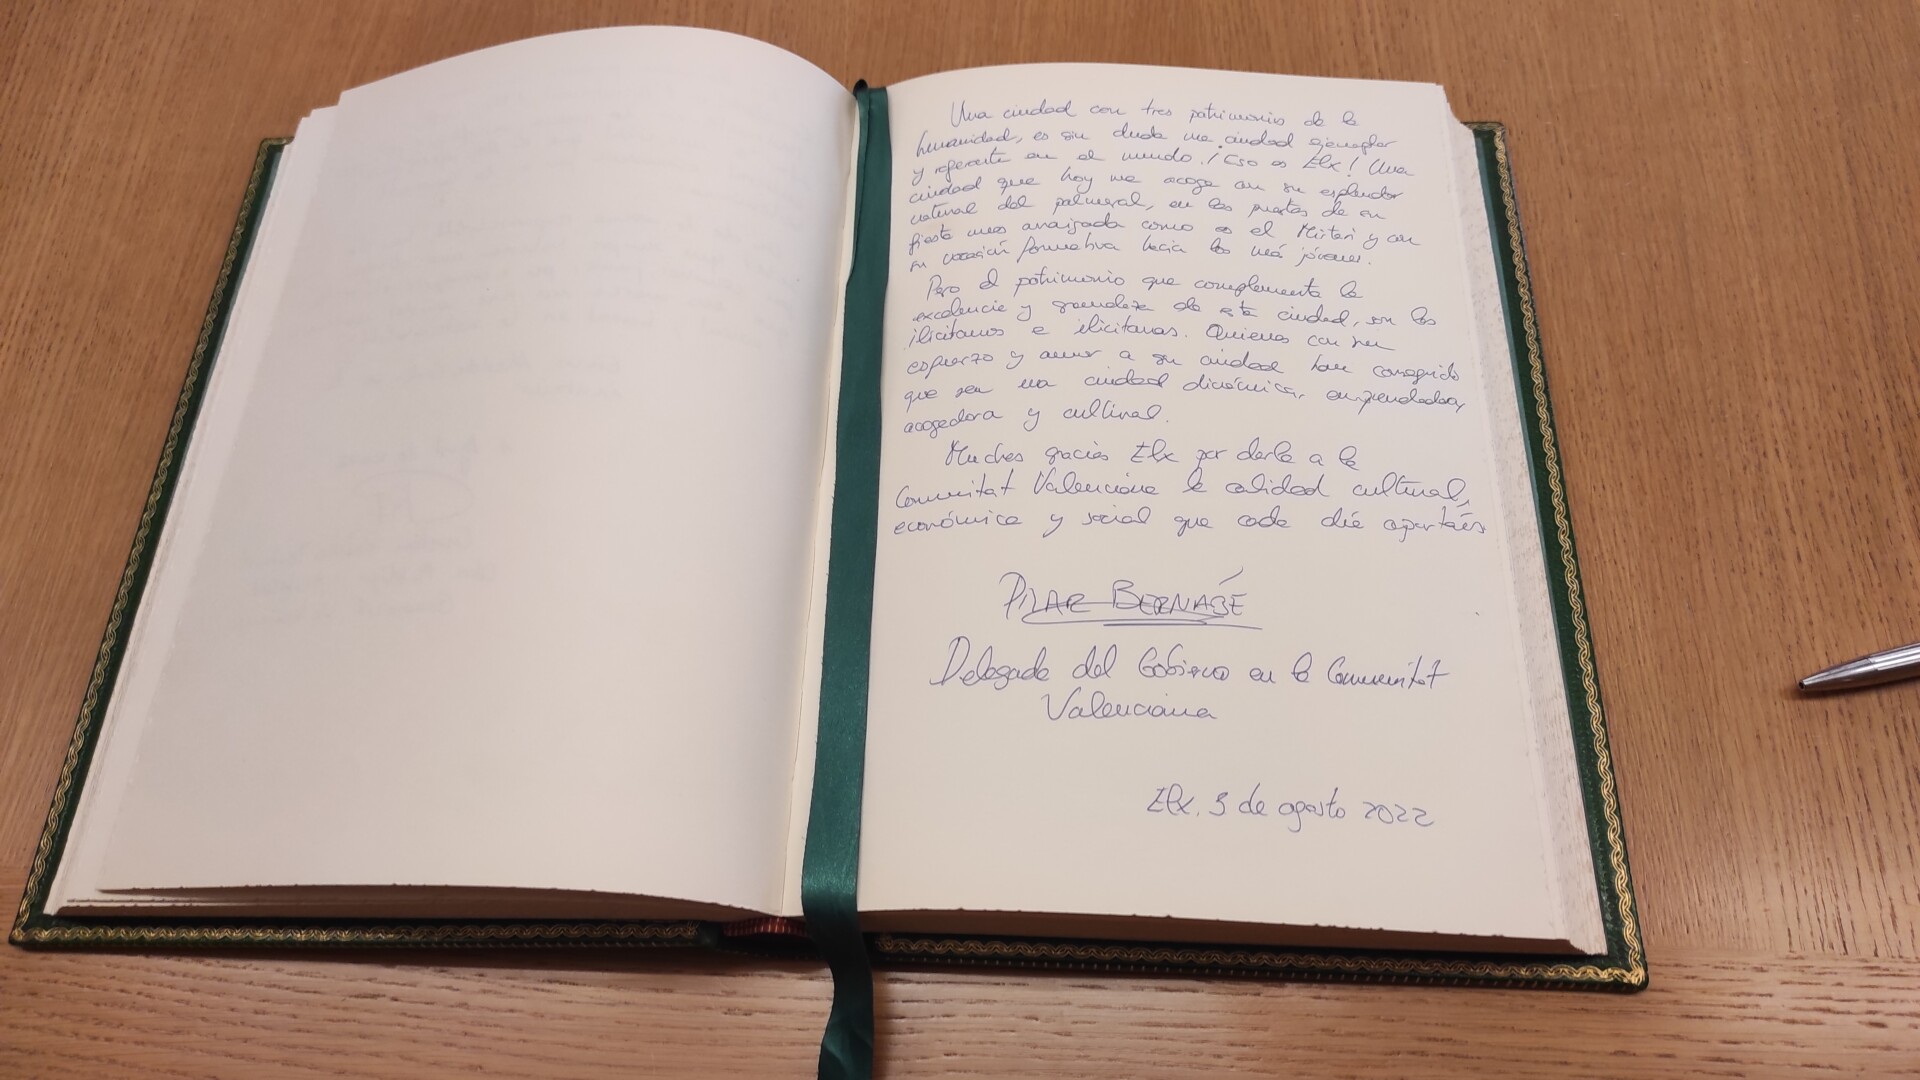 Una ciudad con tres patrimonios de la
humanidad, es sin duda una ciudad ejemplar
y referente en el mundo. ¡Eso es Elx! Una
ciudad que hoy me acoge en su esplendor
natural del palmeral, en las puertas de su
fiesta mas arraigada como es el Misteri y con
su vocación formativa hacia los más jóvenes.
Pero el patrimonio que complementa la
excelencia y grandeza de esta ciudad, son los
ilicitanos e ilicitanas. Quienes con su
esfuerzo y amor a su ciudad han conseguido
que sea una ciudad dinámica, emprendedora,
acogedora y cultural.
Muchas gracias Elx por darle a la
Comunitat Valenciana la calidad cultural,
económica y social que cada día aportáis
PILAR BERNABÉ
Delegada del Gobierno en la Comunitat
Valenciana
Elx, 3 de agosto 2022